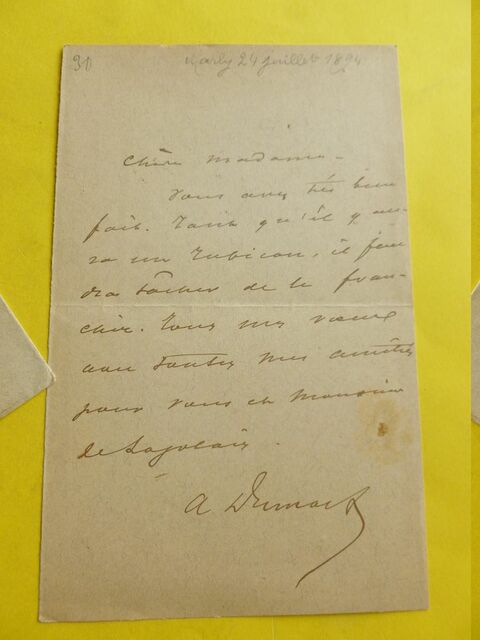 30
Marly 24 juillet 1894
Chère Madame -
Vous avez très bien
fait. Tant qu'il y au-
ra un Rubicon, il fau
dra tâcher de le fran-
chir. Tous mes vœux
avec toutes mes amitiés
pour vous et Monsieur
de
A Dumas f